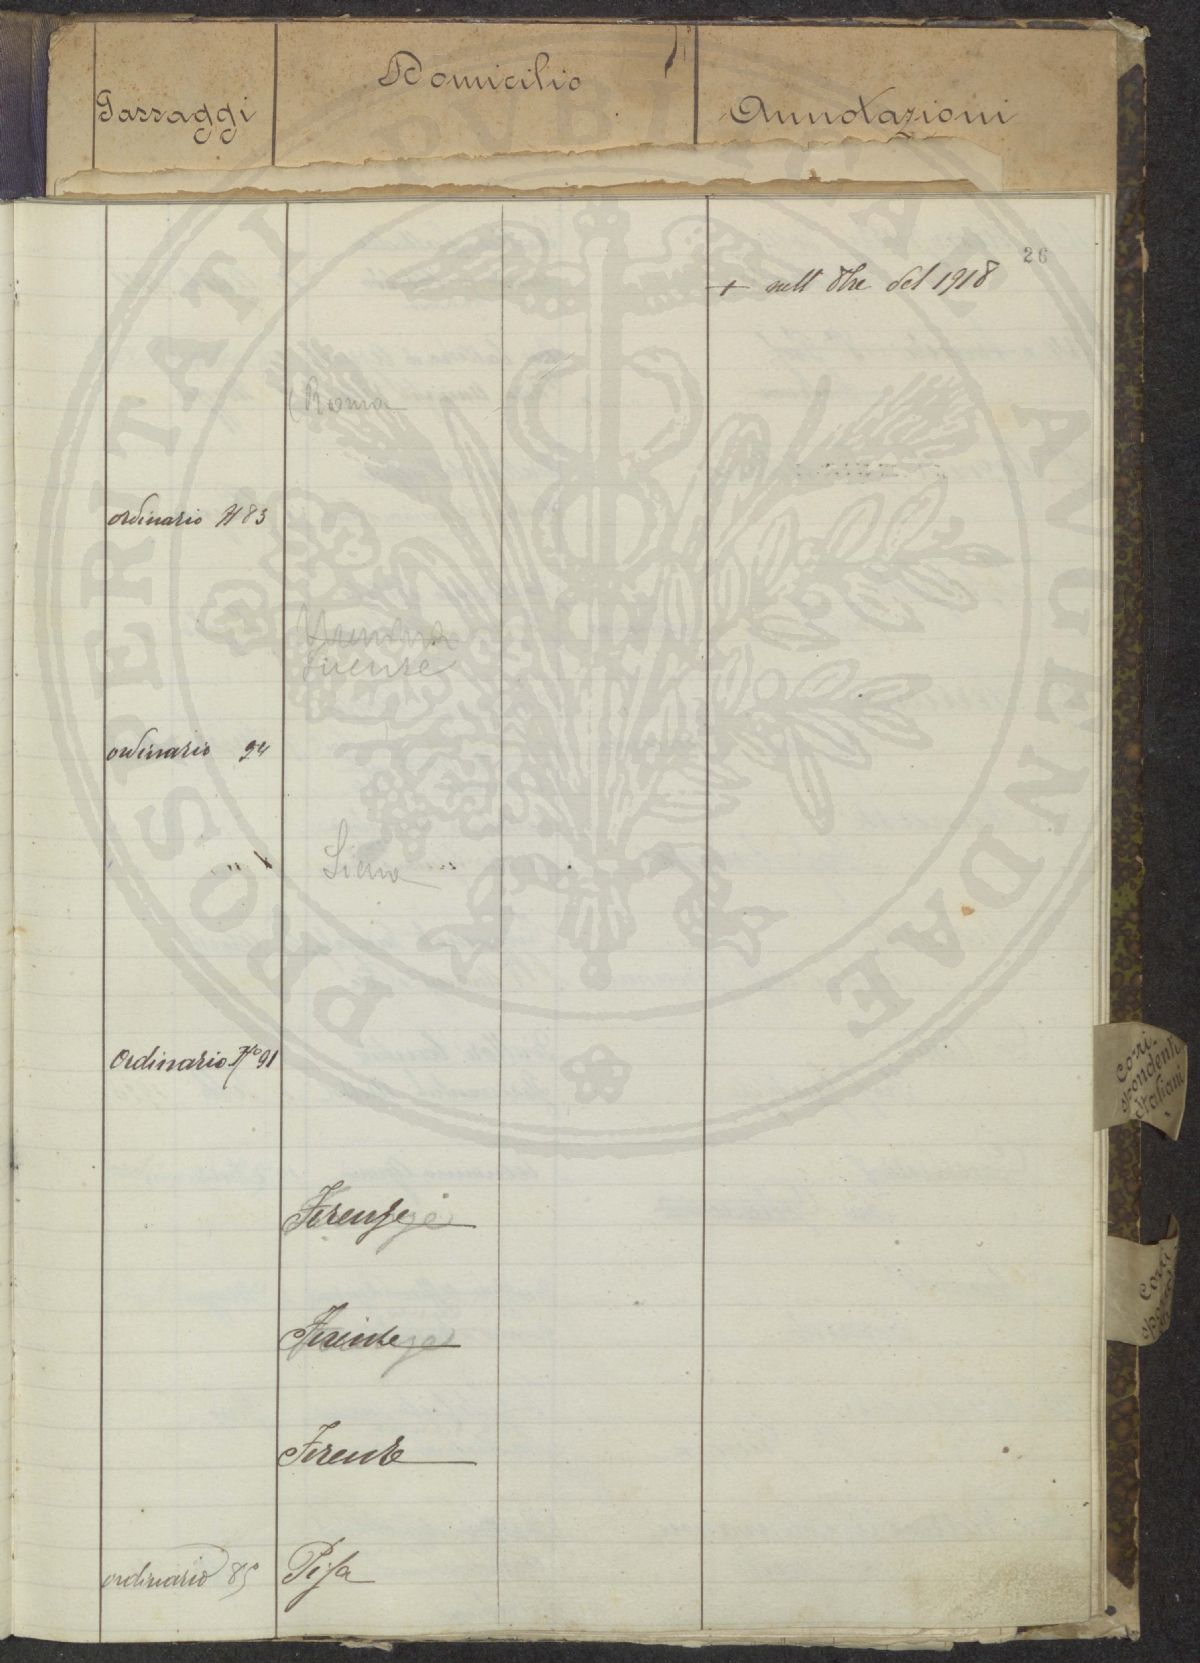 Passaggi
Domicilio
Annotazioni
26
+ nell 8bre del 1918
Roma
ordinario N 83
Firenze
ordinario 94
" "
Siena
Ordinario No 91
Corri-
spondenti
Italiani
Firenze
Corri
Firenze
Firenze
ordinario 85 Pisa
PROSPERITATI PUBLICAE AUGENDAE